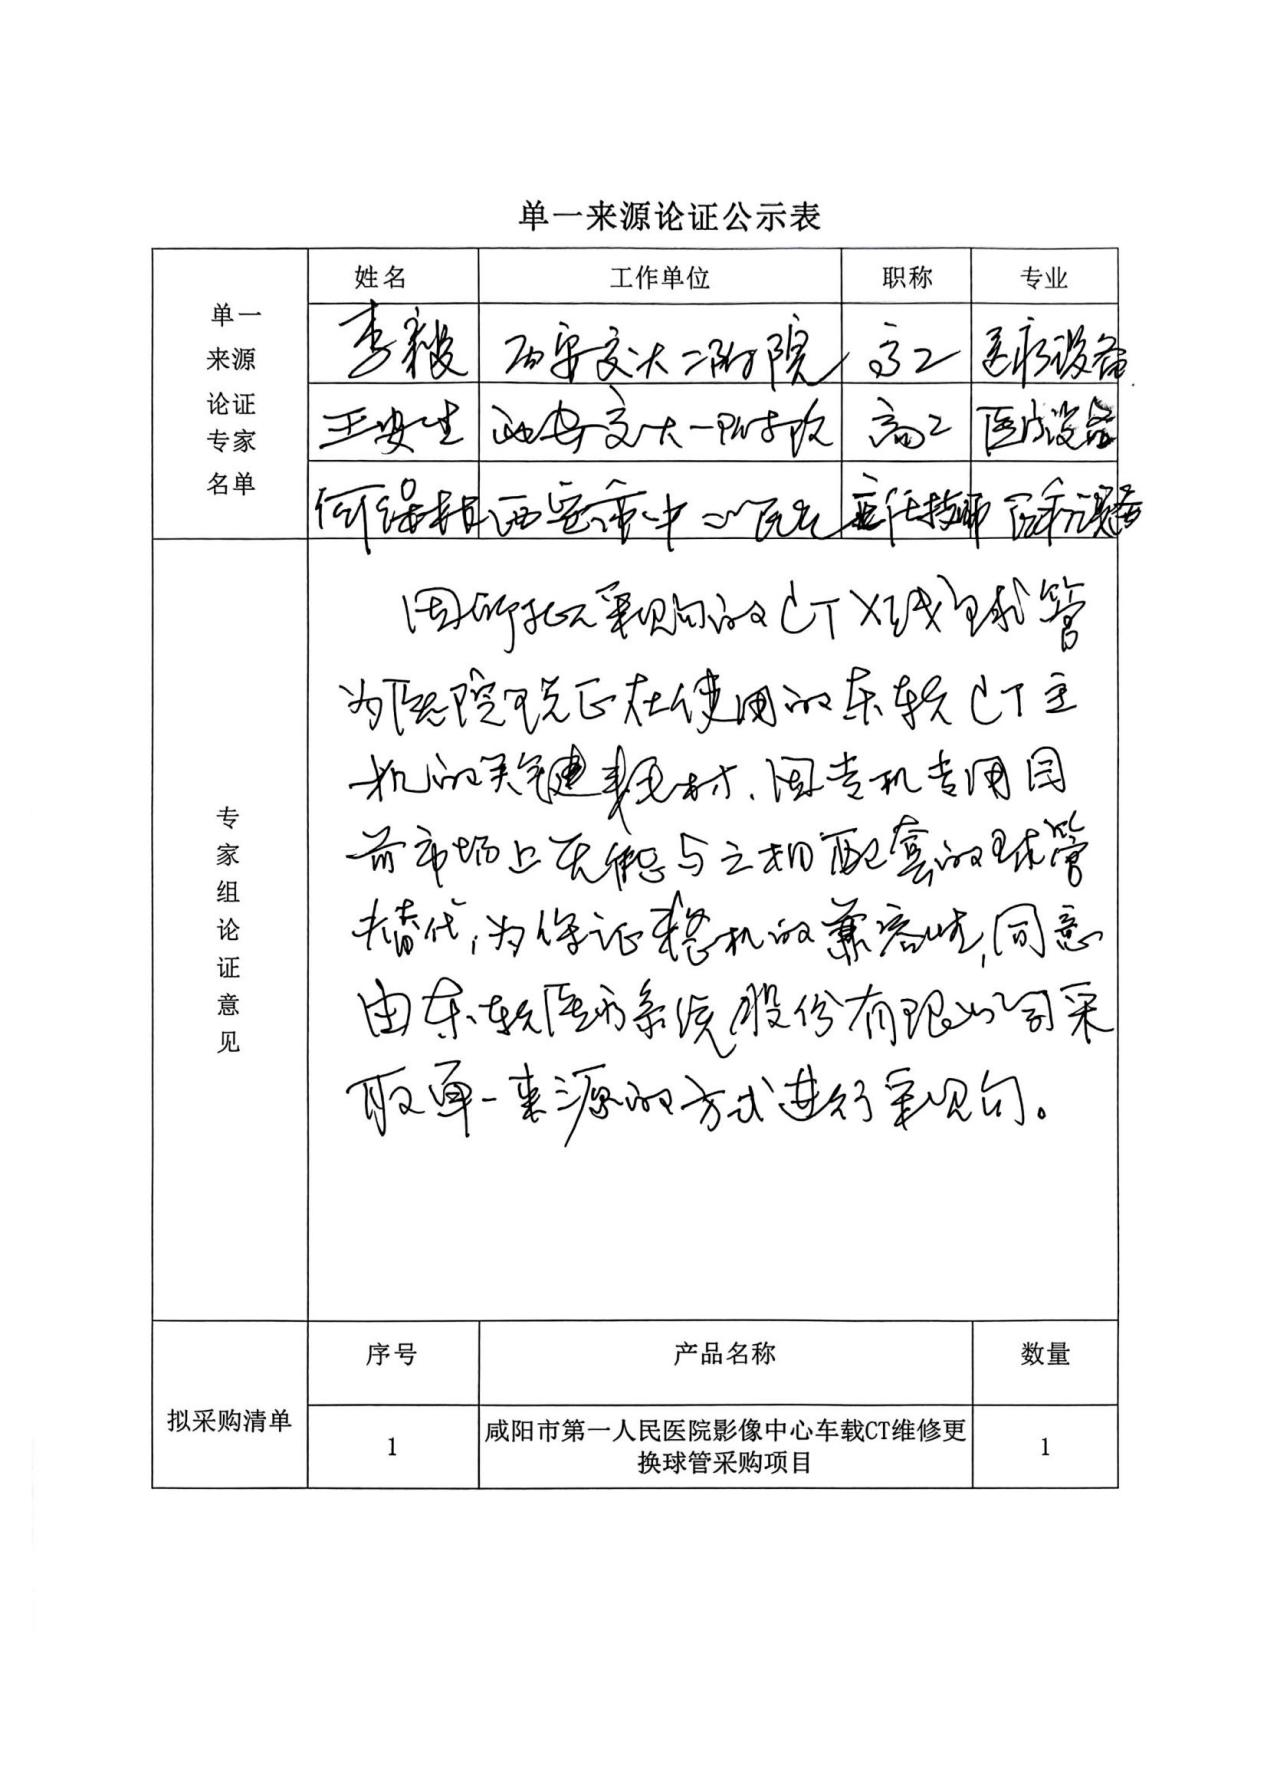 单一来源论证公示表
单一
来源
论证
专家
名单
姓名 工作单位 职称 专业
李毅 西安交大二附院 高工 医疗设备
王安生 西安交大一附院 高工 医疗设备
何 西安市中心医院 主任技师 医疗设备
专家组论证意见
因所拟采购的CTX线球管
为医院现正在使用的东软CT主
机的关键耗材、因专机专用目
前市场上无其他与之相配套的球管
替代,为保证整机的兼容性,同意
由东软医疗系统股份有限公司采
取单一来源的方式进行采购。
拟采购清单
序号 产品名称 数量
1 咸阳市第一人民医院影像中心车载CT维修更 1
换球管采购项目